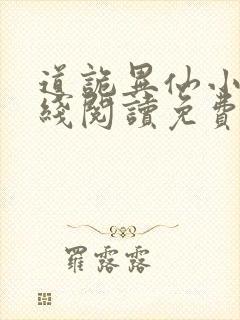 道詭異仙小
綫閱讀免費
羅露露